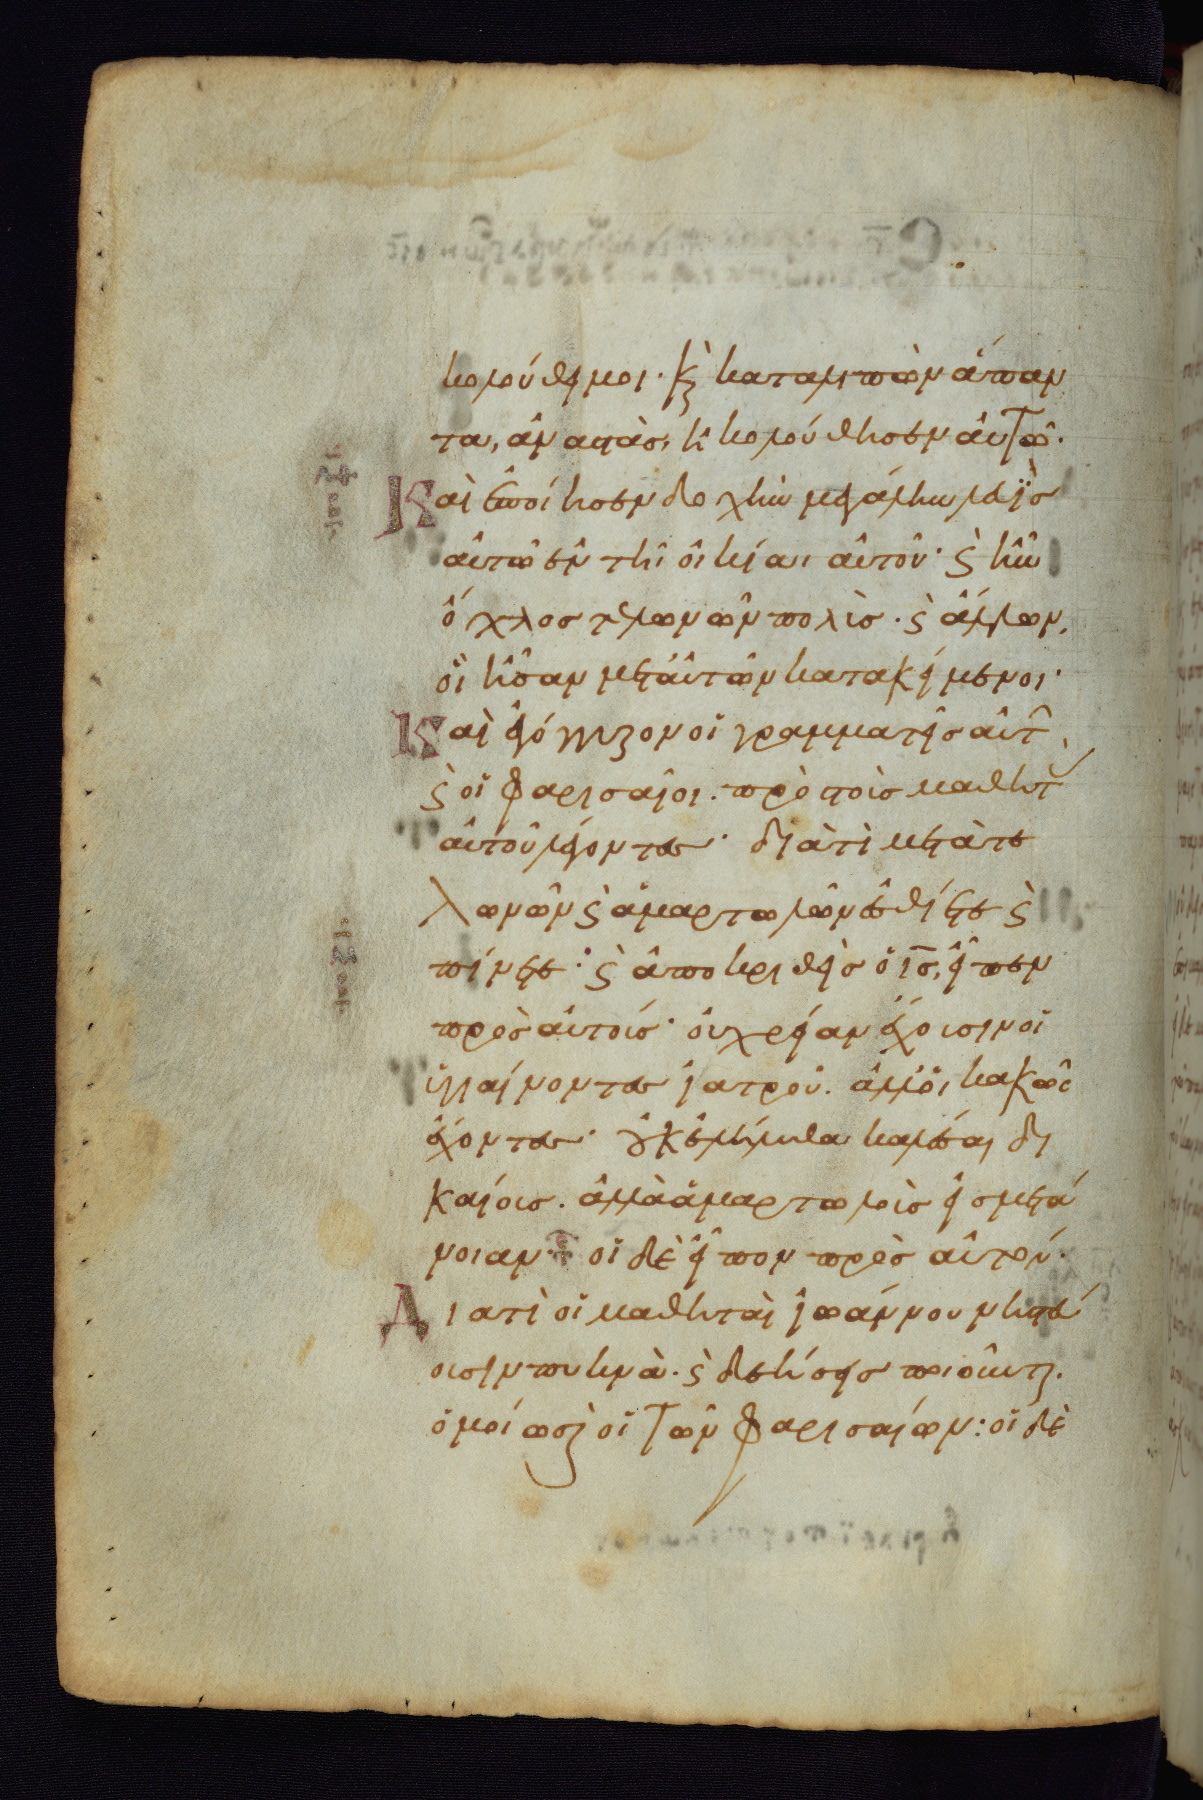 κολούθει μοι· κ(αὶ) καταλιπὼν ἅπαν
τα, ἀναστὰς, ἠκολούθησεν αὐτῶ·
Καὶ ἐποίησεν δοχὴν μεγάλην λευῒς
αὐτῶ ἐν τῆ οἰκίαι αὐτοῦ· κ(αὶ) ἦν
ὄχλος τελωνῶν πολὺς· κ(αὶ) ἄλλων,
οἳ ἦσαν μετ' αὐτῶν κατακείμενοι·
Καὶ ἐγόγγυζον οἱ γραμματεῖς αὐτ
κ(αὶ) οἱ φαρισαῖοι· πρὸς τοὺς μαθητ
αὐτοῦ λέγοντες· διὰ τί μετὰ τε
λωνῶν κ(αὶ) ἁμαρτωλῶν ἐσθίετε κ(αὶ)
πίνετε· κ(αὶ) ἀποκριθεὶς ὁ ις, εἶπεν
πρὸς αὐτούς· οὐ χρείαν ἔχουσιν οἱ
ὑγιαίνοντες ἰατροῦ· ἀλλ' οἱ κακῶς
ἔχοντες· οὐκ ἐλήλυθα καλέσαι δι
καίους· ἀλλὰ ἁμαρτωλοὺς εἰς μετά
νοιαν· οἱ δὲ εἶπον πρὸς αὐτόν·
Διατί οἱ μαθηταὶ ἰωάννου νηστεύ
ουσιν πυκνὰ· κ(αὶ) δεήσεις ποιοῦντ(αι)·
ὁμοίως κ(αὶ) οἱ τῶν φαρισαίων: οἱ δὲ